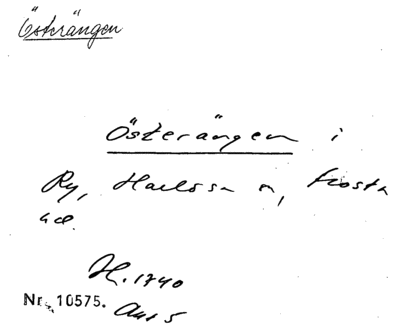 Österängen
Österängen i
Ry, Harlösa sn, Frosta
hd.
H. 1740
Nr. 10575. Akt 5